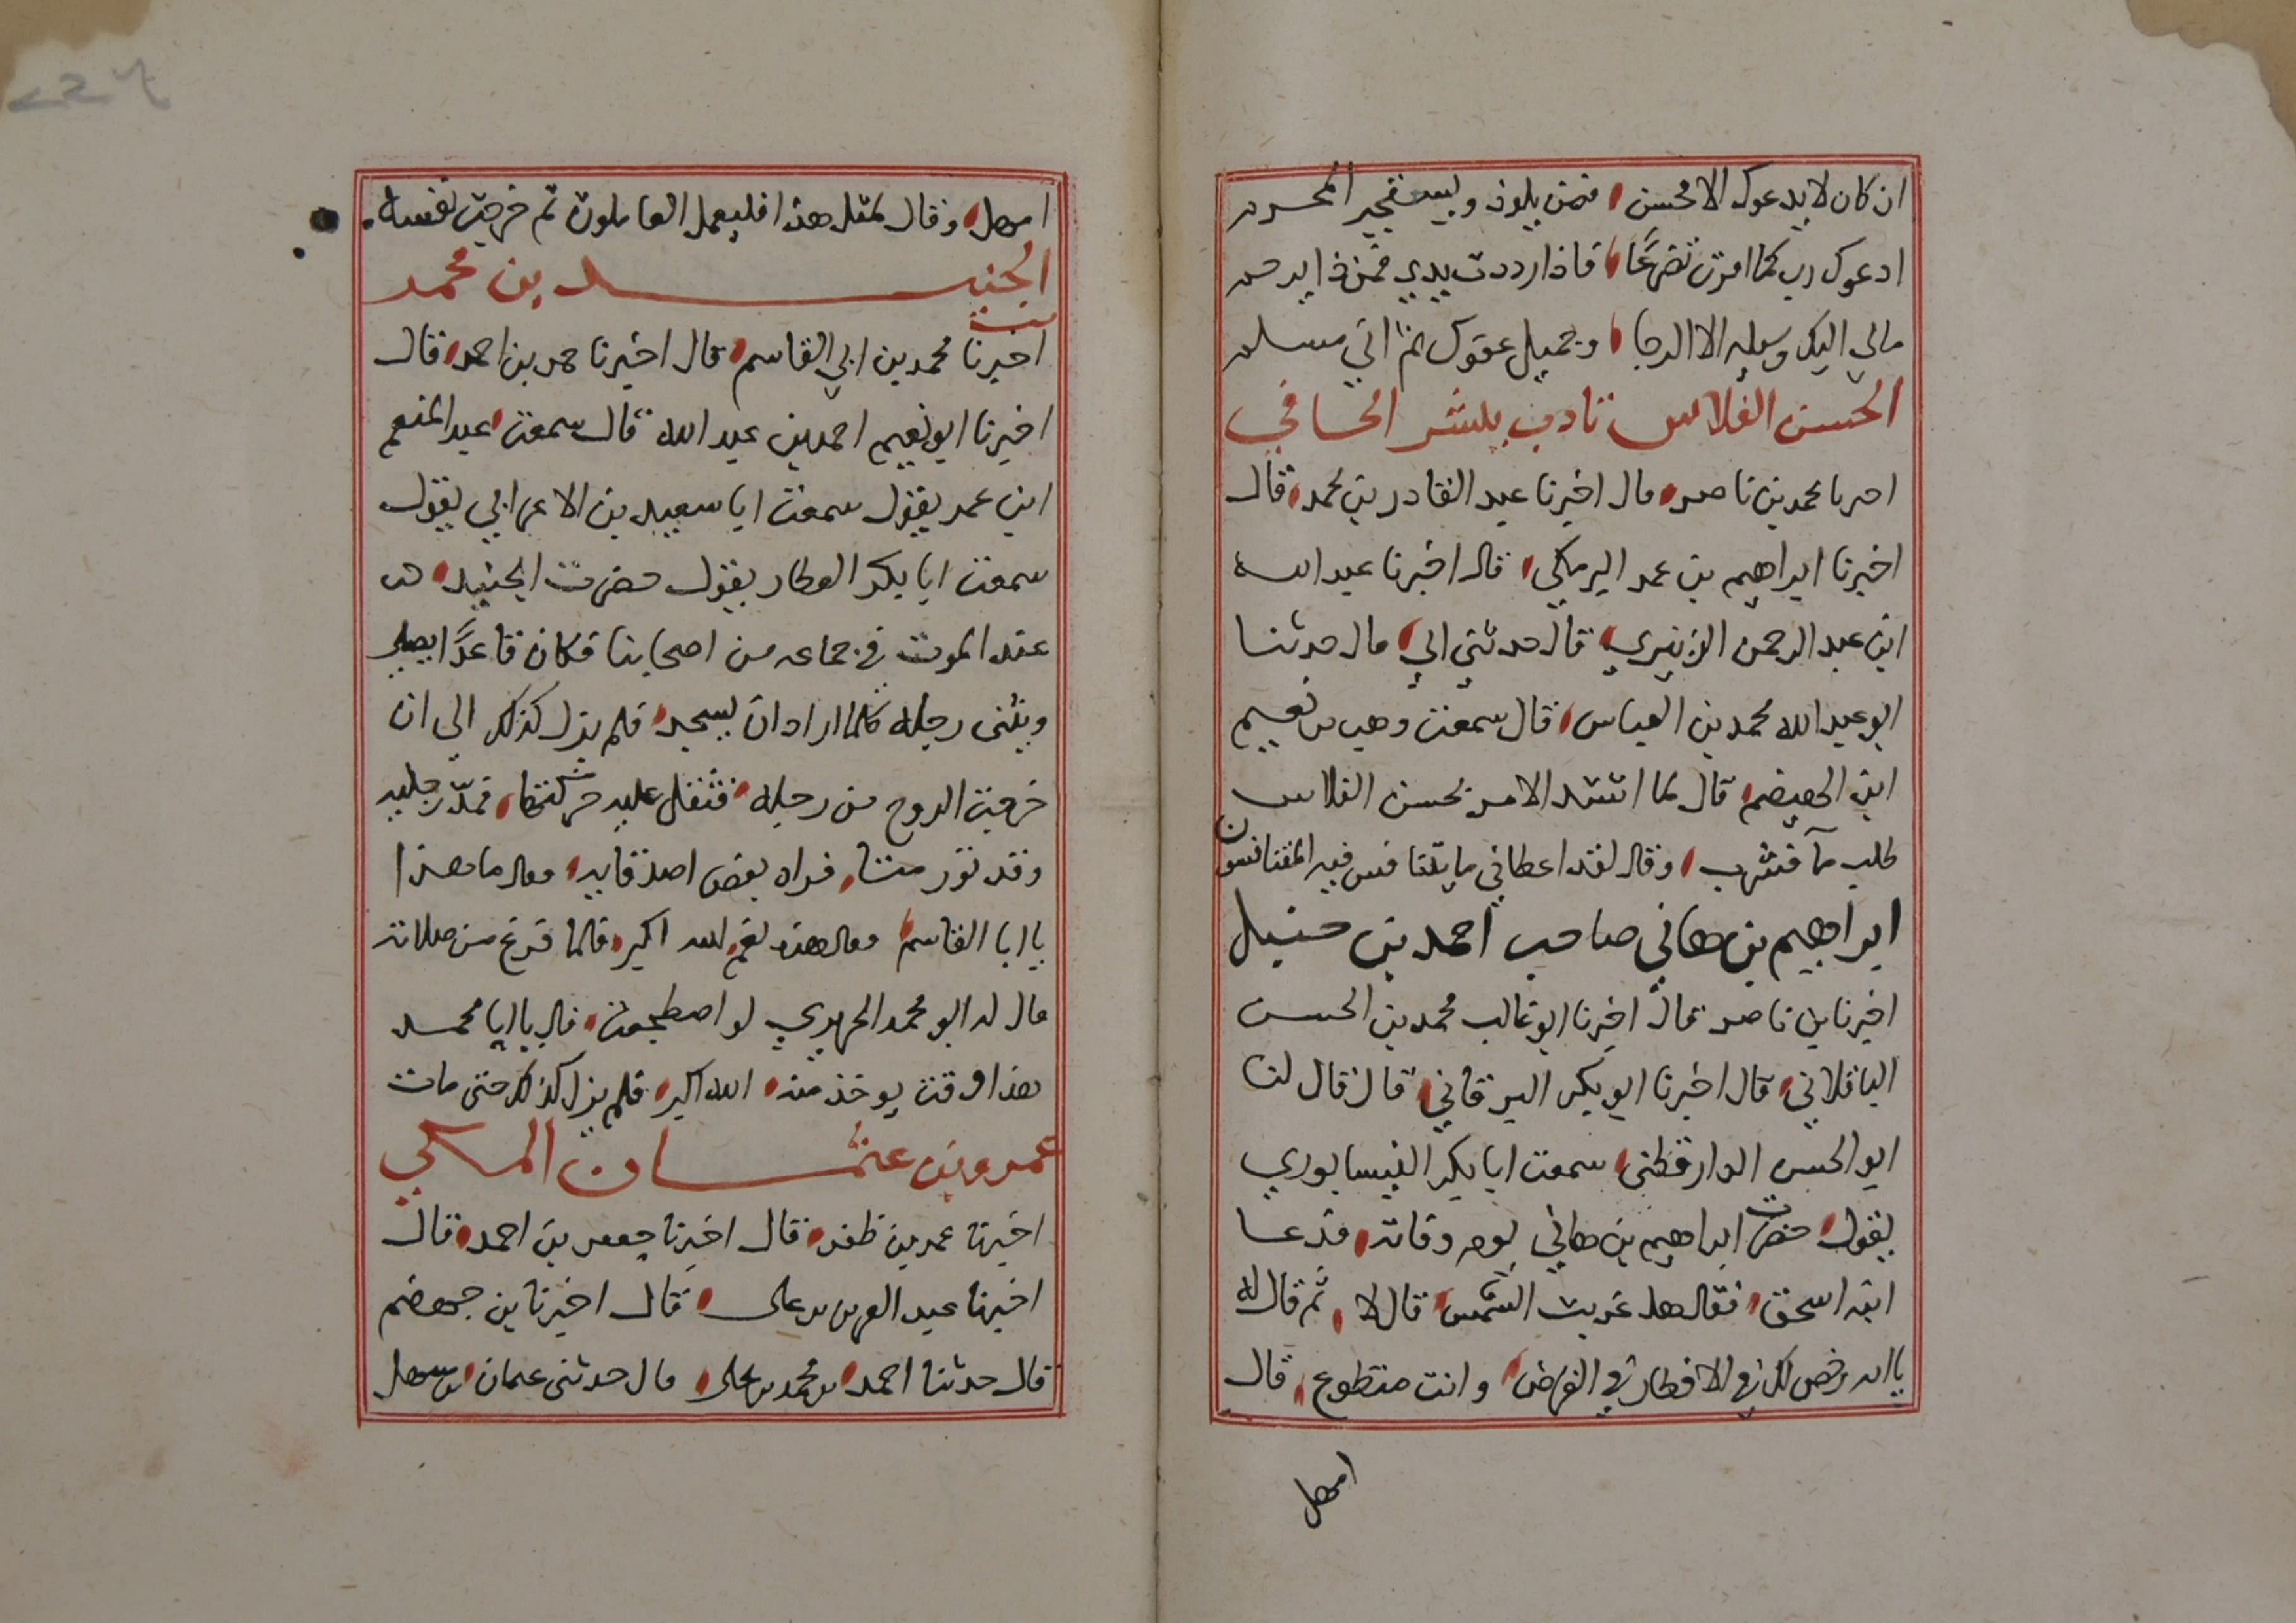 ان كان لا يدعوك الا محسن فمن يلوذ ويستجير المجرم
ادعوك رب كما امرت تضرعًا فاذا رددت يدي فمن ذا يرحم
مالي اليك وسيله الا الرجا وجميل عفوك ثم اني مسلم
الحسن الفلاس تادب ببشر الحافي
اخبرنا محمد بن ناصر قال اخبرنا عبد القادر بن محمد قال
اخبرنا ابراهيم بن عمر البرمكي قال اخبرنا عبيد الله
ابن عبد الرحمن الزهري قال حدثني ابي قال حدثنا
ابو عبد الله محمد بن العباس قال سمعت وهب بن نعيم
ابن الهيضم قال لما اشتد الامر بحسن الفلاس
طلب مآ فشرب وقال لقد اعطاني ما يتنافس فيه المتنافسون
ابراهيم بن هاني صاحب احمد بن حنبل
اخبرنا بن ناصر قال اخبرنا ابو غالب محمد بن الحسن
الباقلاني قال اخبرنا ابو بكر البرقاني قال قال لنا
ابو الحسن الدارقطني سمعت ابا بكر النيسابوري
يقول حضرت ابراهيم بن هاني يوم وفاته فدعا
ابنه اسحق فقال هل غربت الشمس قال لا ثم قال له
يا ابه رخص لك في الافطار في الفرض وانت متطوع قال
امهل
امهل وقال لمثل هذا فليعمل العاملون ثم خرجت نفسه
الجنيد بن محمد
اخبرنا محمد بن ابي القاسم قال اخبرنا حمد بن احمد قال
اخبرنا ابو نعيم احمد بن عبد الله قال سمعت عبد المنعم
ابن عمر يقول سمعت ابا سعيد بن الاعرابي يقول
سمعت ابا بكر العطار يقول حضرت الجنيد
عند الموت في جماعه من اصحابنا فكان قاعدًا يصلي
ويثنى رجله كلما اراد ان يسجد فلم يزل كذلك الى ان
خرجت الروح من رجله فثقل عليه حركتها فمدّ رجليه
وقد تورمتا فراه بعض اصدقايه وقال ما هذا
يا ابا القاسم وقال هذه نعم الله اكبر فلما فرغ من صلاته
قال له ابو محمد الجريري لو اضطجعت قال يا ابا محمد
هذا وقت يوخذ منه الله اكبر فلم يزل كذلك حتى مات
عمرو بن عثمان المكي
اخبرنا عمر بن ظفر قال اخبرنا جعفر بن احمد قال
اخبرنا عبد العزيز بن علي قال اخبرنا بن جهضم
قال حدثنا احمد بن محمد بن علي قال حدثني عثمان بن سهل